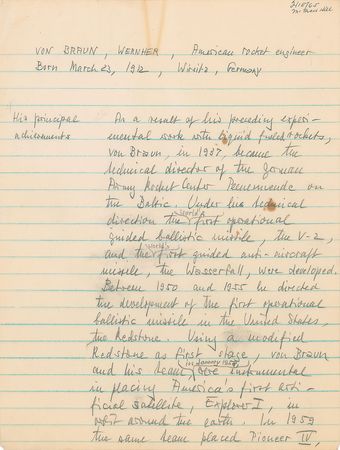 3/15/65
VON BRAUN, WERNHER, American rocket engineer
Born March 23, 1912, Wirsitz, Germany
His principal achievements
As a result of his preceding experi-
mental work with liquid fueled rockets,
von Braun, in 1937, became the
technical director of the German
Army Rocket Center Peenemunde on
the Baltic. Under his technical
direction the world's first operational
guided ballistic missile, the V-2,
and the world's first guided anti-aircraft
missile, the Wasserfall, were developed.
Between 1950 and 1955 he directed
the development of the first operational
ballistic missile in the United States,
the Redstone. Using a modified
Redstone as first stage, von Braun
and his team were instrumental
in January 1958,
in placing America's first arti-
ficial satellite, Explorer I, in
orbit around the earth. In 1959
the same team placed Pioneer IV,